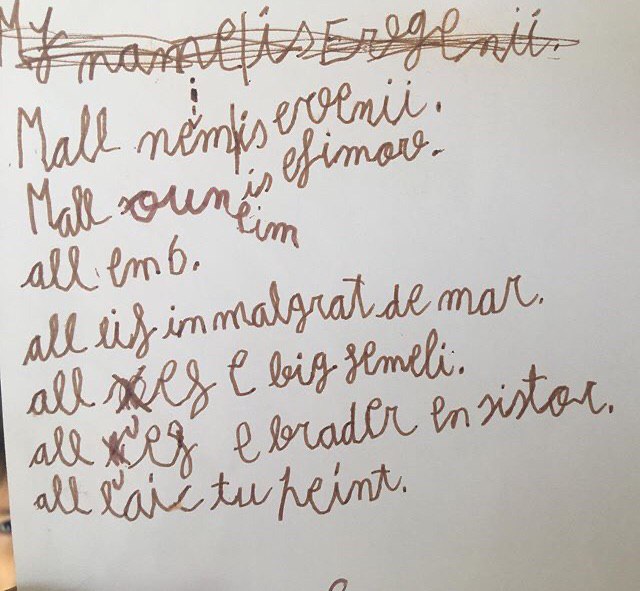 My name is
Mall nem is evenii.
Mall is efimov.
eim
all em 6.
all lif in malgrat de mar.
all es e big femeli.
all e brader en sistor.
all laic tu peint.